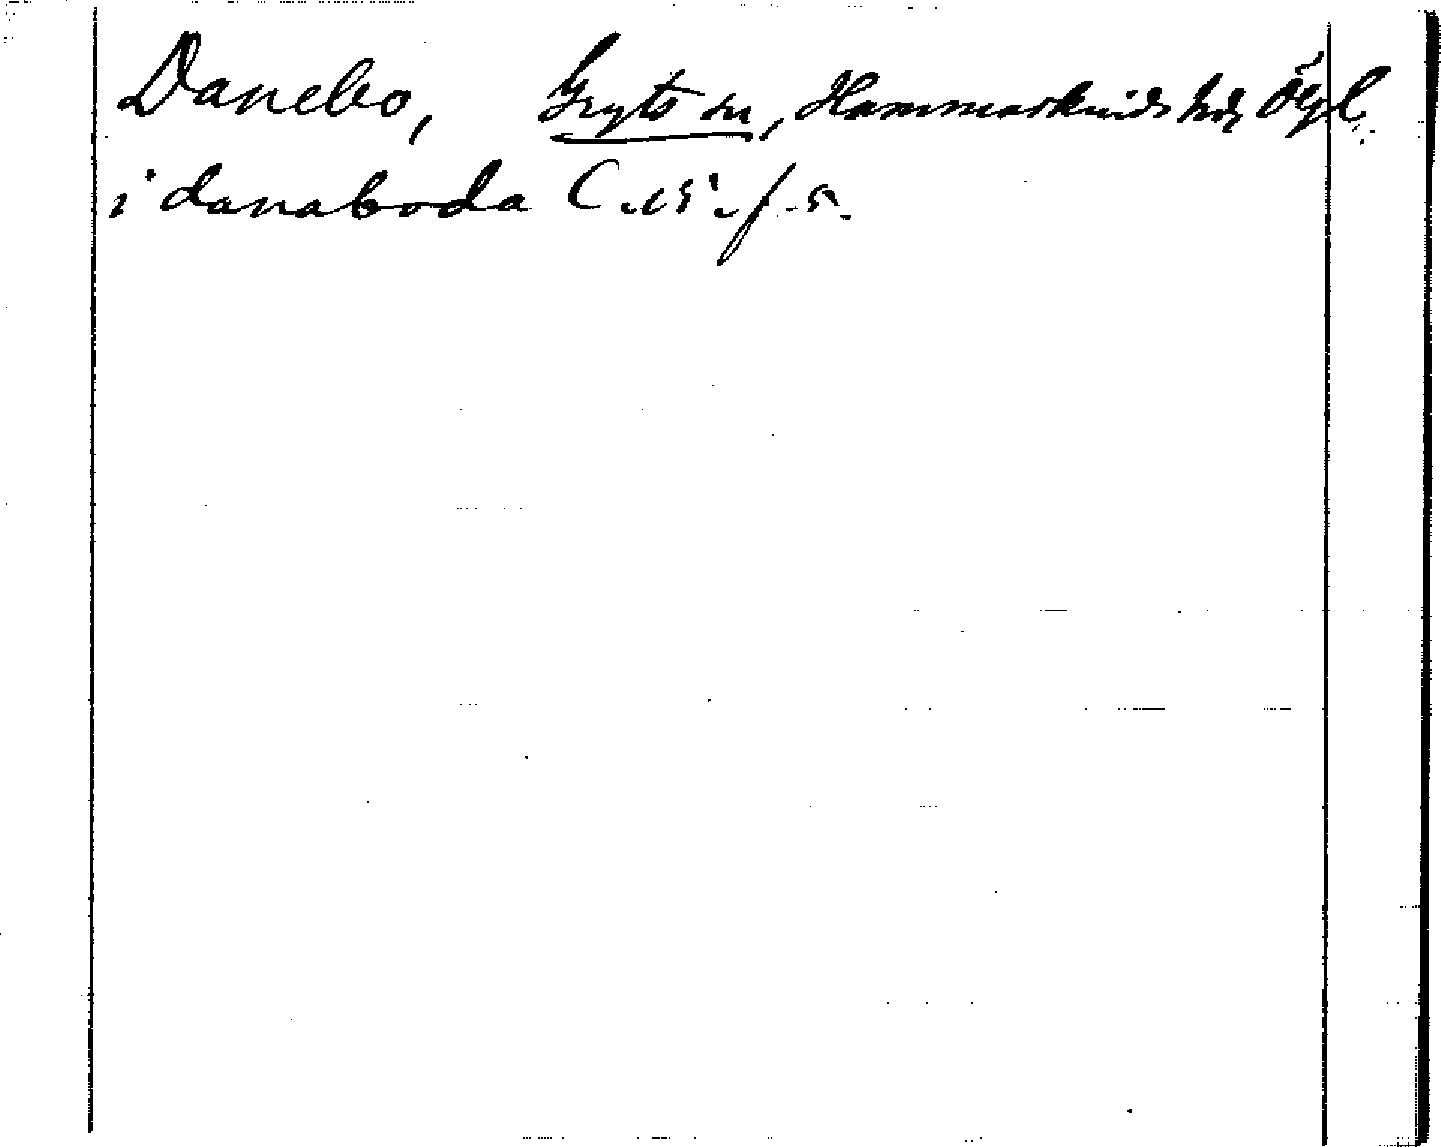 Danebo, Gryts sn, Hammarkinds hd, Ögl.
i danaboda C. 15. f. 5.